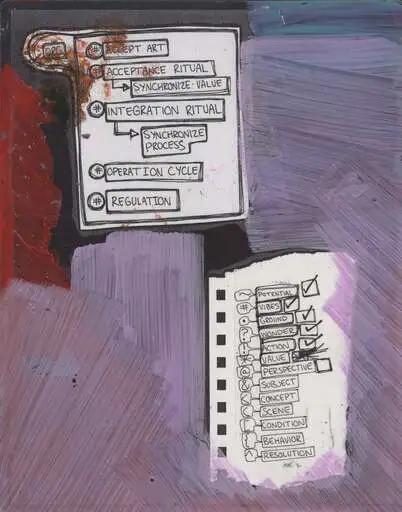 # ACCEPT ART
# ACCEPTANCE RITUAL
SYNCHRONIZE-VALUE
# INTEGRATION RITUAL
SYNCHRONIZE
PROCESS
# OPERATION CYCLE
# REGULATION
~ POTENTIAL
# VIBES
• GROUND
WONDER
ACTION
VALUE
@ PERSPECTIVE
& SUBJECT
CONCEPT
SCENE
CONDITION
BEHAVIOR
^ RESOLUTION